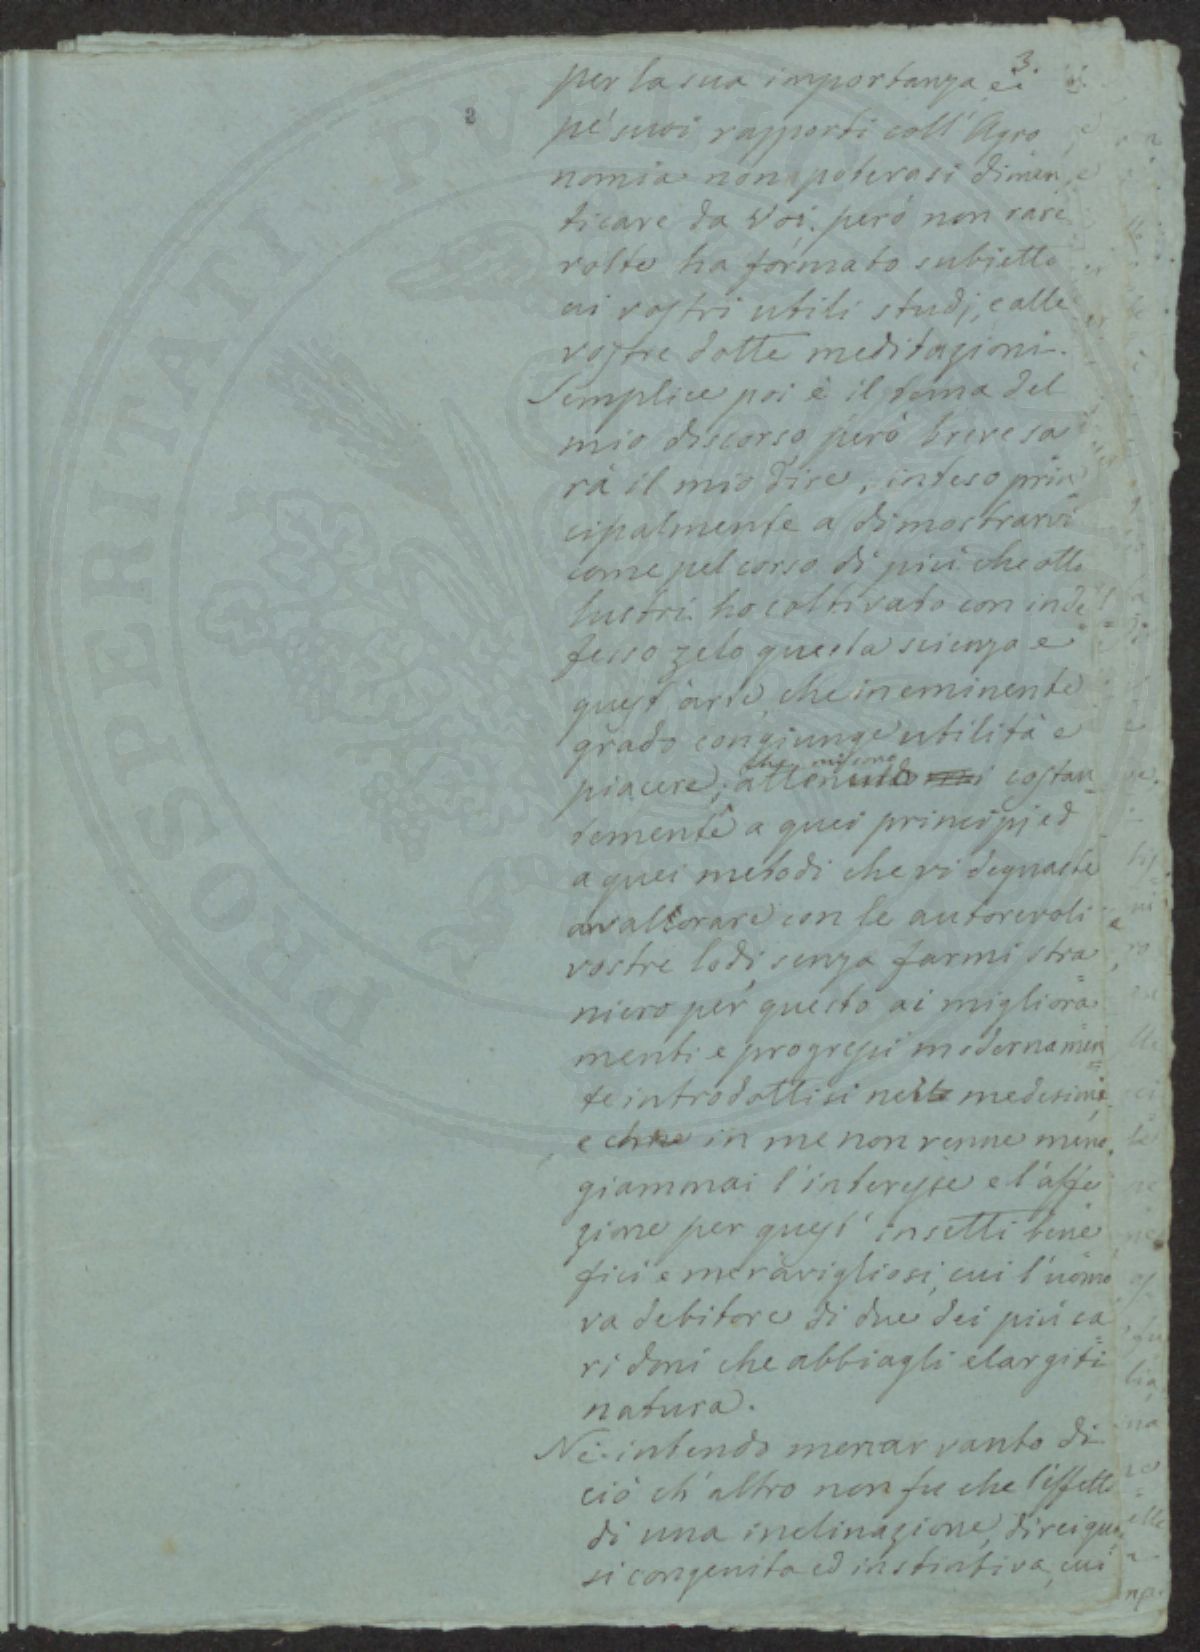 3.
2
per la sua importanza, e
pe' suoi rapporti coll' Agro
nomia non potevasi dimen
ticare da Voi, però non rare
volte ha formato subietto
ai vostri utili studj, e alle
vostre dotte meditazioni.
Semplice poi è il tema del
mio discorso però breve sa
rà il mio dire, inteso prin
cipalmente a dimostrarvi
come pel corso di più che otto
lustri ho coltivato con inde
fesso zelo questa scienza e
quest' arte che in eminente
grado congiunge utilità e
che mi sono
piacere; attenuto costan
temente a quei principj ed
a quei metodi che vi degnaste
avvalorare con le autorevoli
vostre lodi senza farmi stra
niero per questo ai migliora
menti e progressi modernamen
te introdottisi nelle medesime
e che in me non venne meno
giammai l'interesse e l'affe
zione per quest' insetti bene
fici e meravigliosi, cui l'uomo
va debitore di due dei più ca
ri doni che abbiagli elargiti
natura.
Nè intendo menar vanto di
ciò ch' altro non fu che l'effetto
di una inclinazione, direi qua
si congenita ed instintiva, cui
PROSPERITATI PVBLICAE